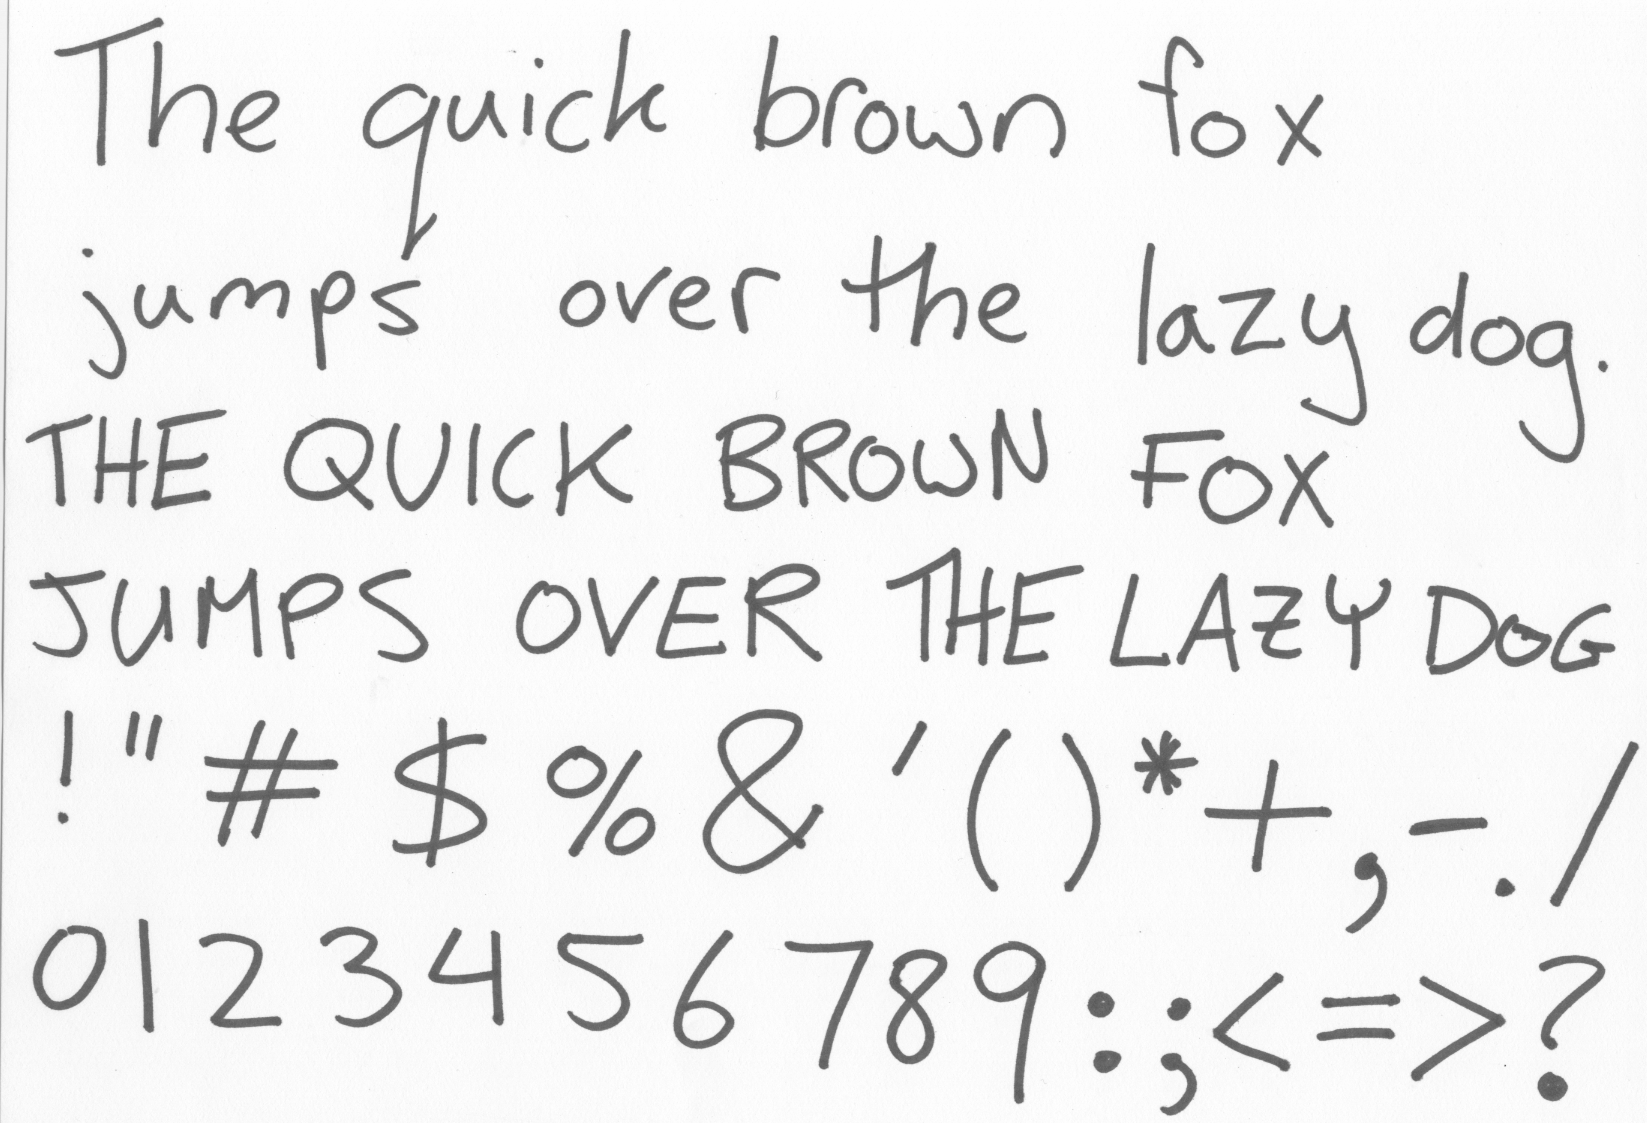 The quick brown fox
jumps over the lazy dog.
THE QUICK BROWN FOX
JUMPS OVER THE LAZY DOG
! " # $ % & ' ( ) * + , - . /
0 1 2 3 4 5 6 7 8 9 : ; < = > ?